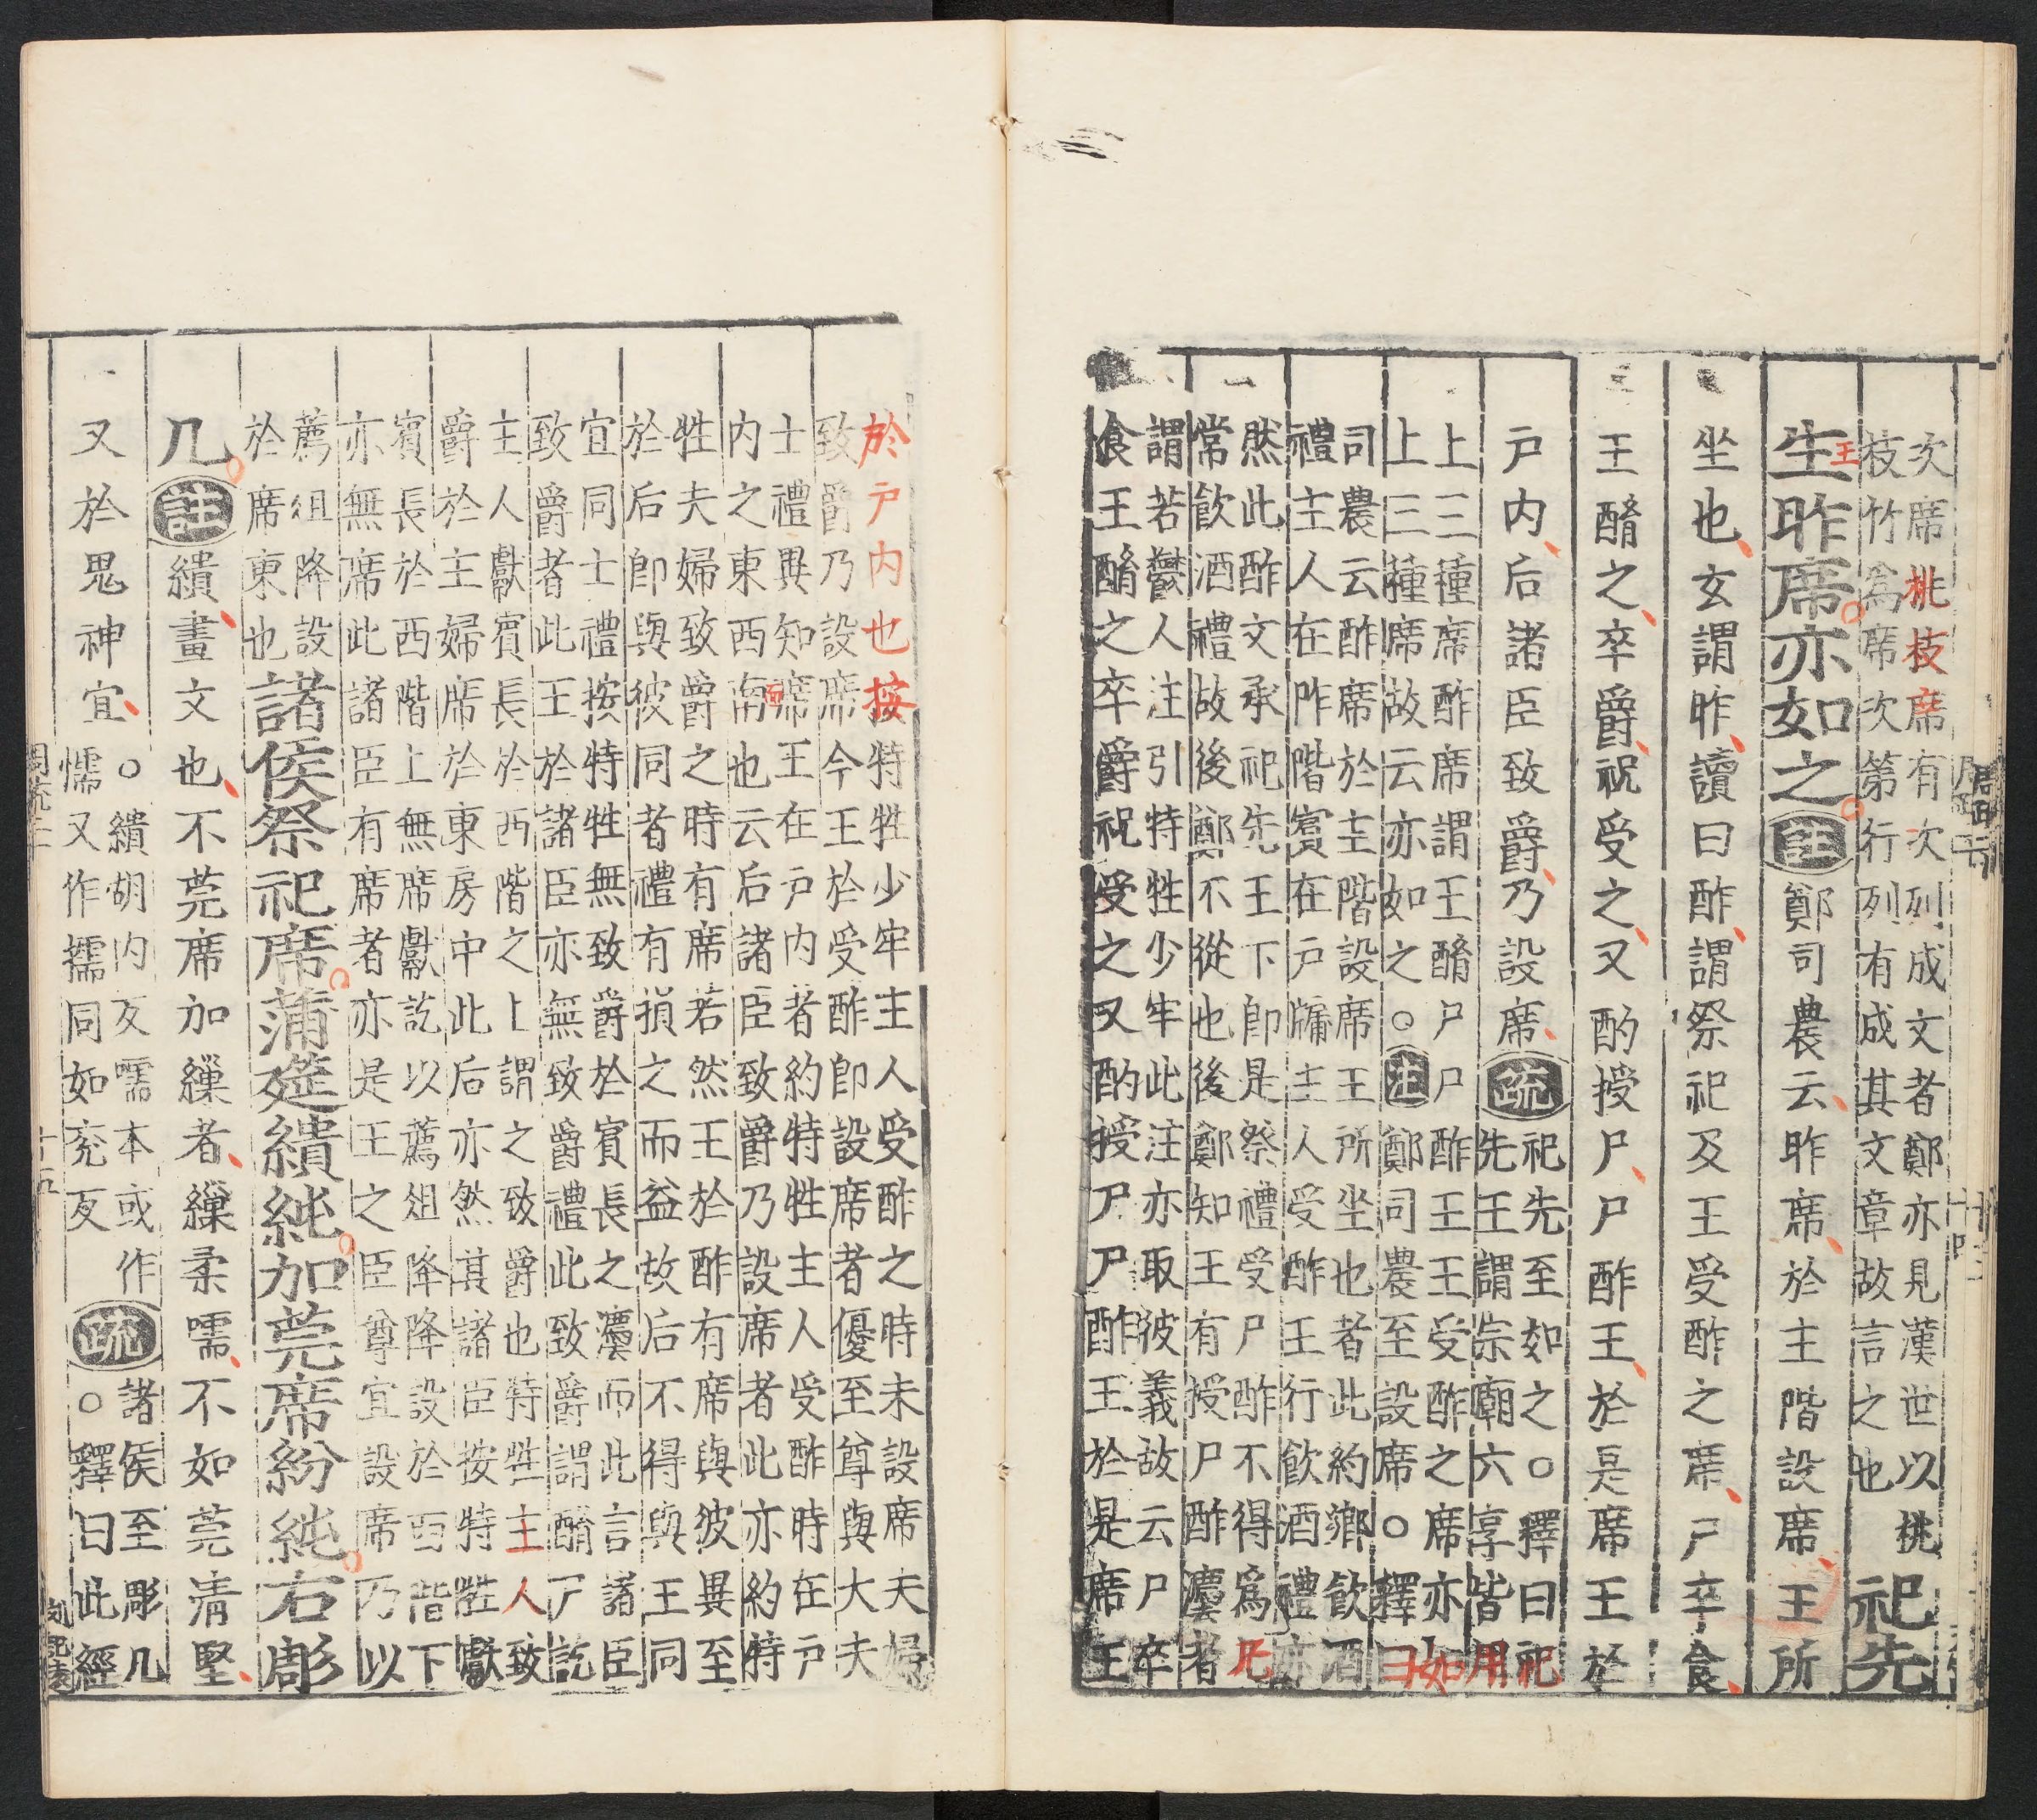 次席桃枝席有次列成文者鄭亦見漢世以桃
枝竹爲席次第行列有成其文章故言之也
祀先
生王昨席亦如之註鄭司農云昨席於主階設席王所
坐也玄謂昨讀曰酢謂祭祀及王受酢之席尸卒食
王酳之卒爵祝受之又酌授尸尸酢王於是席王於
戸内后諸臣致爵乃設席疏
祀先至如之○釋曰祀
先王謂宗廟六享皆用
上三種席酢席謂王酳尸尸酢王王受酢之席亦如
上三種席故云亦如之○注鄭司農至設席○釋曰
司農云酢席於主階設席王所坐也者此約鄉飲酒
禮主人在阼階賓在戸牖主人受酢王行飲酒禮亦
然此酢文承祀先王下即是祭禮受尸酢不得爲凡
常飲酒禮故後鄭不從也後鄭知王有授尸酢灋者
謂若鬱人注引特牲少牢此注亦取彼義故云尸卒
食王酳之卒爵祝受之又酌授尸尸酢王於是席王
於戸内也按特牲少牢主人受酢之時未設席夫婦
致爵乃設席今王於受酢即設席者優至尊與大夫
士禮異知席王在戸内者約特牲主人受酢時在戸
内之東西面南也云后諸臣致爵乃設席者此亦約特
牲夫婦致爵之時有席若然王於酢有席與彼異至
於后即與彼同者禮有損之而益故后不得與王同
宜同士禮按特牲無致爵於賓長之灋而此言諸臣
致爵者此王於諸臣亦無致爵禮此致爵謂酳尸訖
主人獻賓長於西階之上謂之致爵也特牲主人致
爵於主婦席於東房中此后亦然其諸臣按特牲獻
賓長於西階上無席獻訖以薦俎降降設於西階下
亦無席此諸臣有席者亦是王之臣尊宜設席乃以
薦俎降設
於席東也
諸侯祭祀席蒲筵繢純加莞席紛純右彫
几註繢畫文也不莞席加繅者繅柔嚅不如莞清堅
又於鬼神宜
○繢胡内反嚅本或作
懦又作擩同如兖反
疏
諸侯至彫几
○釋曰此經